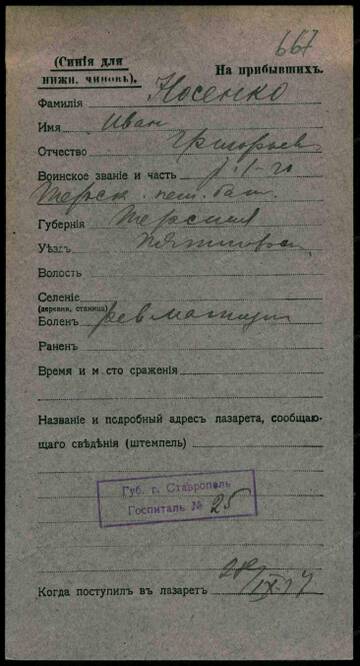 667
(Синія для нижн. чиновъ).
На прибывшихъ.
Фамилія Носенко
Имя Иван
Отчество Григорьев
Воинское званіе и часть р. 1-го
Терск. пеш. бат.
Губернія Терская
Уѣздъ
Волость
Селеніе
(деревня, станица)
Боленъ ревматизм
Раненъ
Время и мѣсто сраженія
Названіе и подробный адресъ лазарета, сообщаю-
щаго свѣдѣнія (штемпель)
Губ. г. Ставрополь
Госпиталь № 25
Когда поступилъ въ лазаретъ 28/IX-17